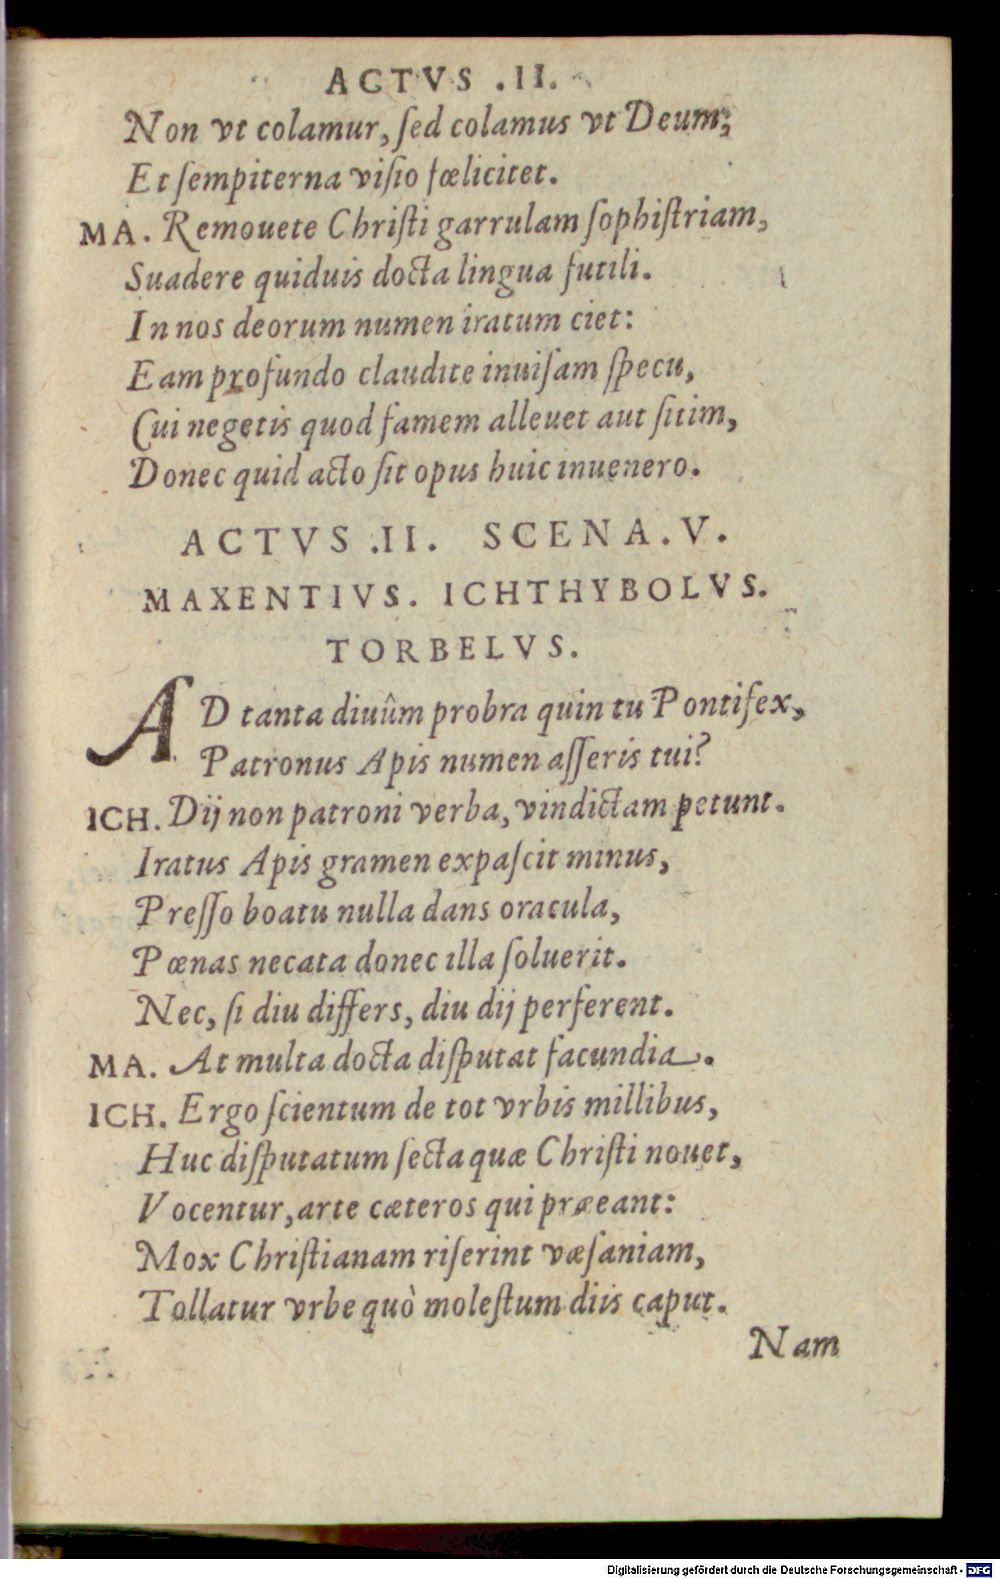 ACTVS .II.
Non vt colamur, ſed colamus vt Deum;
Et ſempiterna viſio fœlicitet.
MA. Remouete Chriſti garrulam ſophiſtriam,
Suadere quiduis docta lingua futili.
In nos deorum numen iratum ciet:
Eam profundo claudite inuiſam ſpecu,
Cui negetis quod famem alleuet aut ſitim,
Donec quid acto ſit opus huic inuenero.
ACTVS .II. SCENA.V.
MAXENTIVS. ICHTHYBOLVS.
TORBELVS.
AD tanta diuûm probra quin tu Pontifex,
Patronus Apis numen aſſeris tui?
ICH. Dij non patroni verba, vindictam petunt.
Iratus Apis gramen expaſcit minus,
Preſſo boatu nulla dans oracula,
Pœnas necata donec illa ſoluerit.
Nec, ſi diu differs, diu dij perferent.
MA. At multa docta diſputat facundia.
ICH. Ergo ſcientum de tot vrbis millibus,
Huc diſputatum ſecta quæ Chriſti nouet,
Vocentur, arte cæteros qui præeant:
Mox Chriſtianam riſerint væſaniam,
Tollatur vrbe quò moleſtum diis caput.
Nam
Digitalisierung gefördert durch die Deutsche Forschungsgemeinschaft - DFG